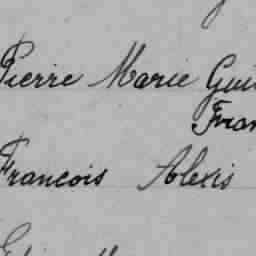 Pierre Marie Gui
Fran
Francois Alexis